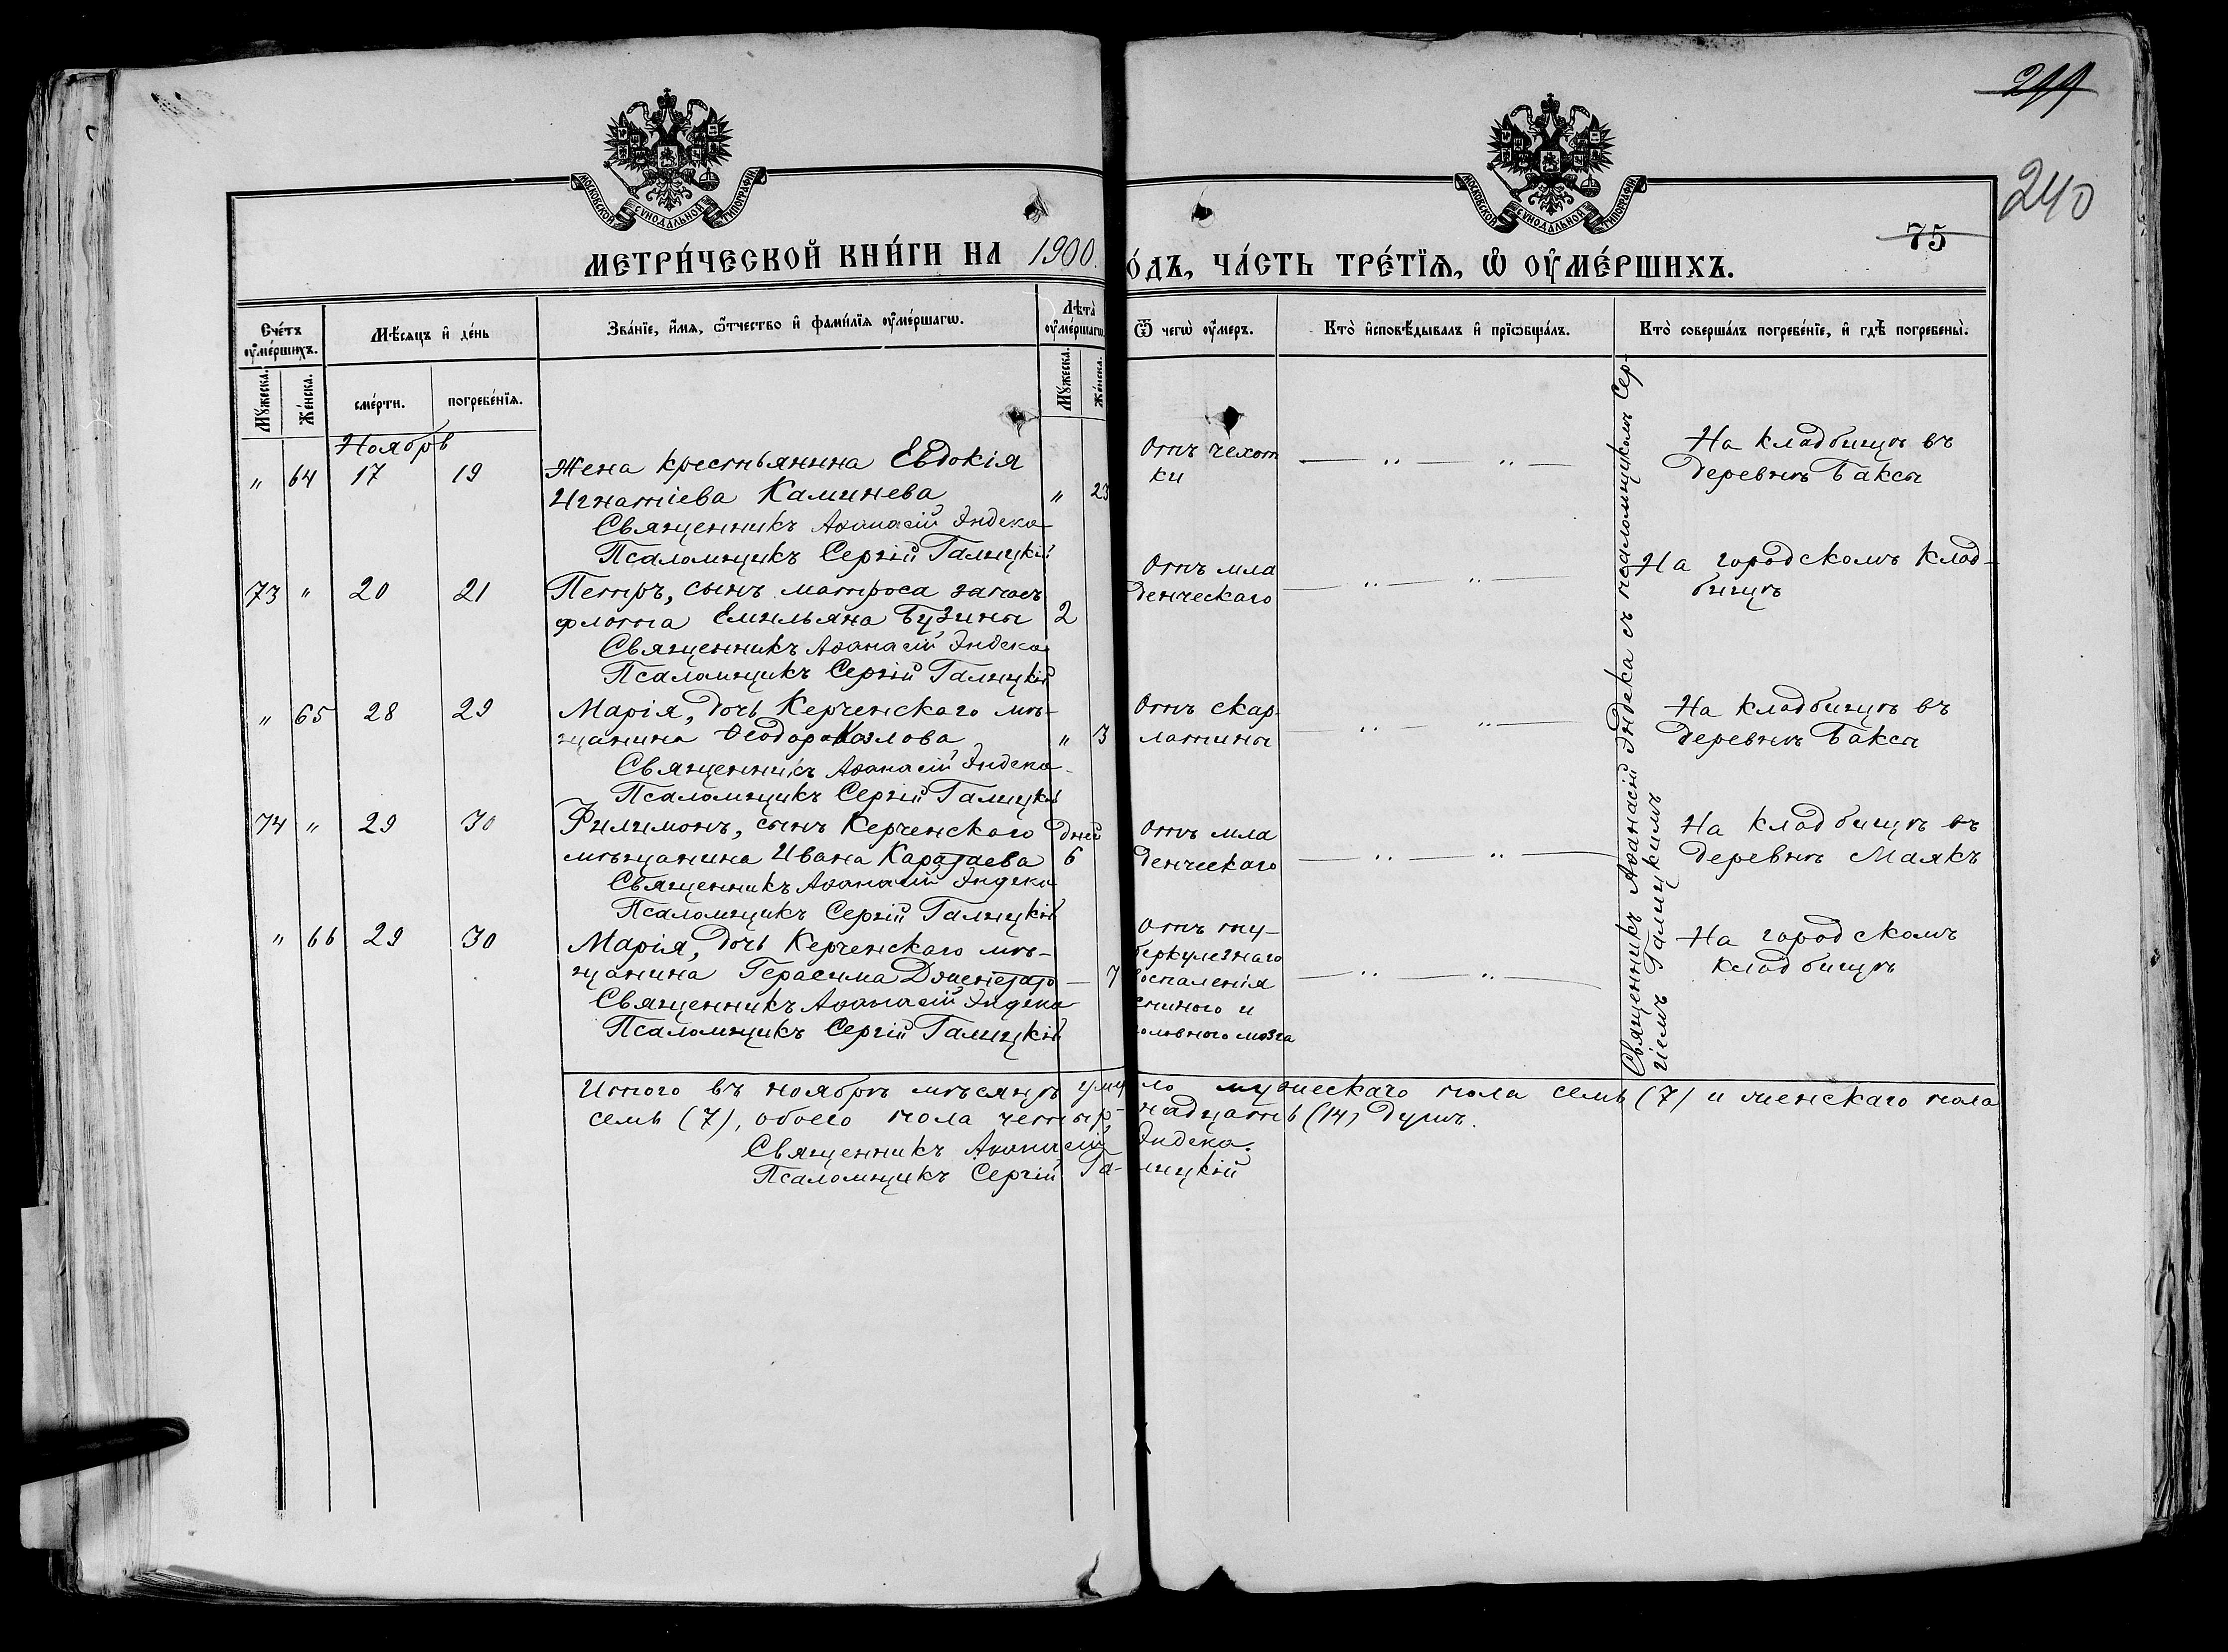 244
240
75
МОСКОВСКОЙ СѴНОДАЛЬНОЙ ТИПОГРАФІИ
МОСКОВСКОЙ СѴНОДАЛЬНОЙ ТИПОГРАФІИ
МЕТРИ́ЧЕСКОЙ КНИ́ГИ НА 1900.
О́ДЪ, ЧА́СТЬ ТРЕ́ТЇѦ, Ѡ҆ ОУ҆МЕ́РШИХЪ.
Сче́тъ оу҆ме́ршихъ.
Мѣ́сяцъ и҆ де́нь
Зва́нїе, и҆́мѧ, ѻ҆́тчество и҆ фами́лїѧ оу҆ме́ршагѡ.
Лѣта̀ оу҆ме́ршагѡ
Ѿ чегѡ̀ оу҆́меръ.
Кто̀ и҆сповѣ́дывалъ и҆ прїѡбща́лъ.
Кто̀ соверша́лъ погребе́нїе, и҆ гдѣ̀ погребены̀.
Мꙋ́жеска.
Же́нска.
сме́рти.
погребе́нїѧ.
Мꙋ́жеска.
Же́нска.
Ноябрь
" 64 17 19 Жена крестьянина Евдокія
Игнатіева Каминева " 23
Священникъ Аѳанасій Эндека
Псаломщикъ Сергій Галицкій
Отъ чехот
ки
На кладбищѣ въ
деревнѣ Баксы
73 " 20 21 Петръ, сынъ матроса запаса
флота Емильяна Бузины 2
Священникъ Аѳанасій Эндека
Псаломщикъ Сергій Галицкій
Отъ мла
денческаго
На городскомъ клад-
бищѣ
" 65 28 29 Марія, дочь Керченскаго мѣ-
щанина Ѳеодора Козлова " 3
Священникъ Аѳанасій Эндека
Псаломщикъ Сергій Галицкій
Отъ скар-
латины
На кладбищѣ въ
деревнѣ Баксы
74 " 29 30 Филимонъ, сынъ Керченскаго дней
мѣщанина Ивана Каратаева 6
Священникъ Аѳанасій Эндека
Псаломщикъ Сергій Галицкій
Отъ мла
денческаго
На кладбищѣ въ
деревнѣ Маякъ
" 66 29 30 Марія, дочь Керченскаго мѣ-
щанина Герасима — 7
Священникъ Аѳанасій Эндека
Псаломщикъ Сергій Галицкій
Отъ ту-
беркулезнаго
воспаленія
спиного и
головного мозга
На городскомъ
кладбищѣ
Священникъ Аѳанасій Эндека съ псаломщикомъ Сер-
гіемъ Галицкимъ
Итого въ ноябрѣ мѣсяцѣ умерло мужескаго пола семь (7) и женскаго пола
семь (7), обоего пола четыр-надцать (14) душъ.
Священникъ Аѳанасій Эндека.
Псаломщикъ Сергій Га-лицкій